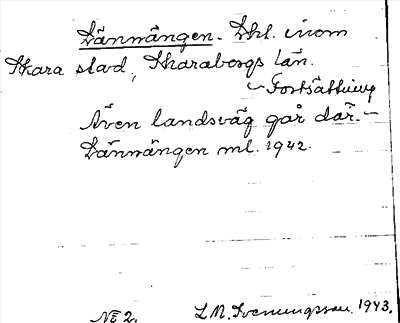 Dännängen. Dhl. inom
Skara stad, Skaraborgs län.
Fortsättning
Även landsväg går där. -
Dännängen ml. 1942.
№ 2. L.M. Svenungsson. 1943.